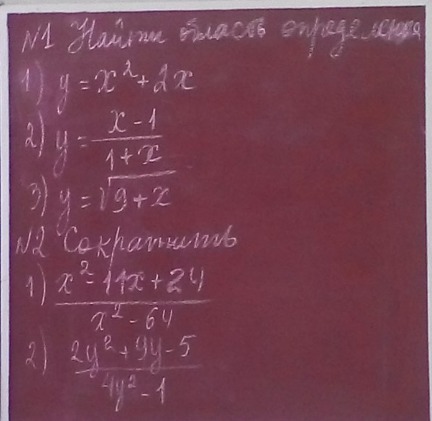 №1 Найти область определения
1) y = x² + 2x
2) y = (x - 1)/(1 + x)
3) y = √(9 + x)
№2 Сократить
1) (x² - 11x + 24)/(x² - 64)
2) (2y² + 9y - 5)/(4y² - 1)